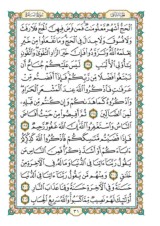 ٱلْحَجُّ أَشْهُرٌ مَّعْلُومَٰتٌ فَمَن فَرَضَ فِيهِنَّ ٱلْحَجَّ فَلَا رَفَثَ
وَلَا فُسُوقَ وَلَا جِدَالَ فِى ٱلْحَجِّ وَمَا تَفْعَلُوا۟ مِنْ خَيْرٍ
يَعْلَمْهُ ٱللَّهُ وَتَزَوَّدُوا۟ فَإِنَّ خَيْرَ ٱلزَّادِ ٱلتَّقْوَىٰ وَٱتَّقُونِ
يَٰٓأُو۟لِى ٱلْأَلْبَٰبِ ١٩٧ لَيْسَ عَلَيْكُمْ جُنَاحٌ أَن
تَبْتَغُوا۟ فَضْلًا مِّن رَّبِّكُمْ فَإِذَآ أَفَضْتُم مِّنْ
عَرَفَٰتٍ فَٱذْكُرُوا۟ ٱللَّهَ عِندَ ٱلْمَشْعَرِ ٱلْحَرَامِ
وَٱذْكُرُوهُ كَمَا هَدَىٰكُمْ وَإِن كُنتُم مِّن قَبْلِهِۦ
لَمِنَ ٱلضَّآلِّينَ ١٩٨ ثُمَّ أَفِيضُوا۟ مِنْ حَيْثُ أَفَاضَ
ٱلنَّاسُ وَٱسْتَغْفِرُوا۟ ٱللَّهَ إِنَّ ٱللَّهَ غَفُورٌ رَّحِيمٌ ١٩٩
فَإِذَا قَضَيْتُم مَّنَٰسِكَكُمْ فَٱذْكُرُوا۟ ٱللَّهَ كَذِكْرِكُمْ
ءَابَآءَكُمْ أَوْ أَشَدَّ ذِكْرًا فَمِنَ ٱلنَّاسِ مَن
يَقُولُ رَبَّنَآ ءَاتِنَا فِى ٱلدُّنْيَا وَمَا لَهُۥ فِى ٱلْءَاخِرَةِ مِنْ
خَلَٰقٍ ٢٠٠ وَمِنْهُم مَّن يَقُولُ رَبَّنَآ ءَاتِنَا فِى ٱلدُّنْيَا
حَسَنَةً وَفِى ٱلْءَاخِرَةِ حَسَنَةً وَقِنَا عَذَابَ ٱلنَّارِ ٢٠١
أُو۟لَٰٓئِكَ لَهُمْ نَصِيبٌ مِّمَّا كَسَبُوا۟ وَٱللَّهُ سَرِيعُ ٱلْحِسَابِ ٢٠٢
٣١